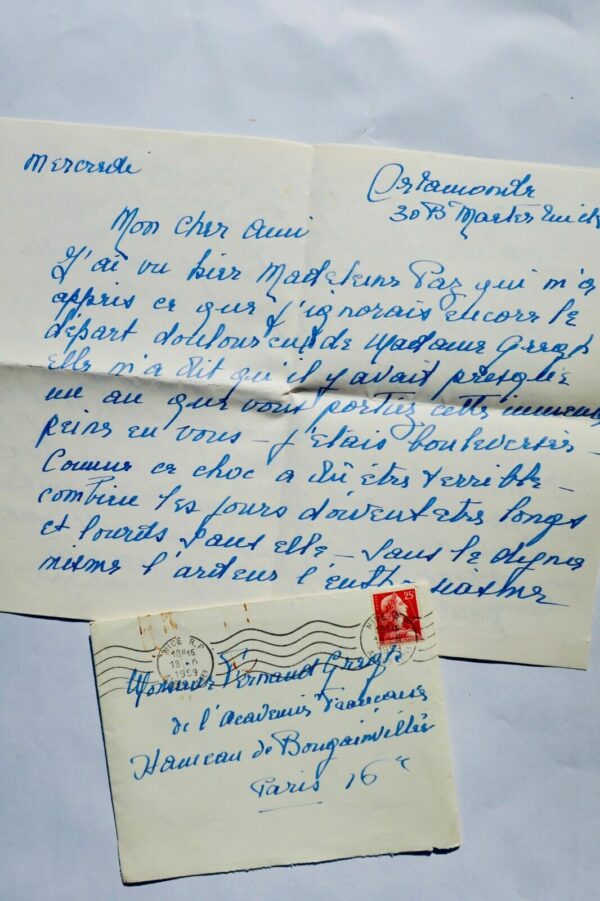 Mercredi
Orlamonde
30 Bd Maeterlinck
Mon cher ami
J'ai vu hier Madeleine Paz qui m'a
appris ce que j'ignorais encore le
départ douloureux de Madame Gregh
elle m'a dit qu'il y avait presque
un an que vous portiez cette immense
peine en vous – j'étais bouleversée –
Comme ce choc a dû être terrible –
combien les jours doivent être longs
et lourds sans elle – sans le dyna
misme l'ardeur l'enthousiasme
NICE R.P.
18H15
18-6
1959
25
Monsieur Fernand Gregh
de l'Academie Francaise
Hameau de Bougainville
Paris 16e